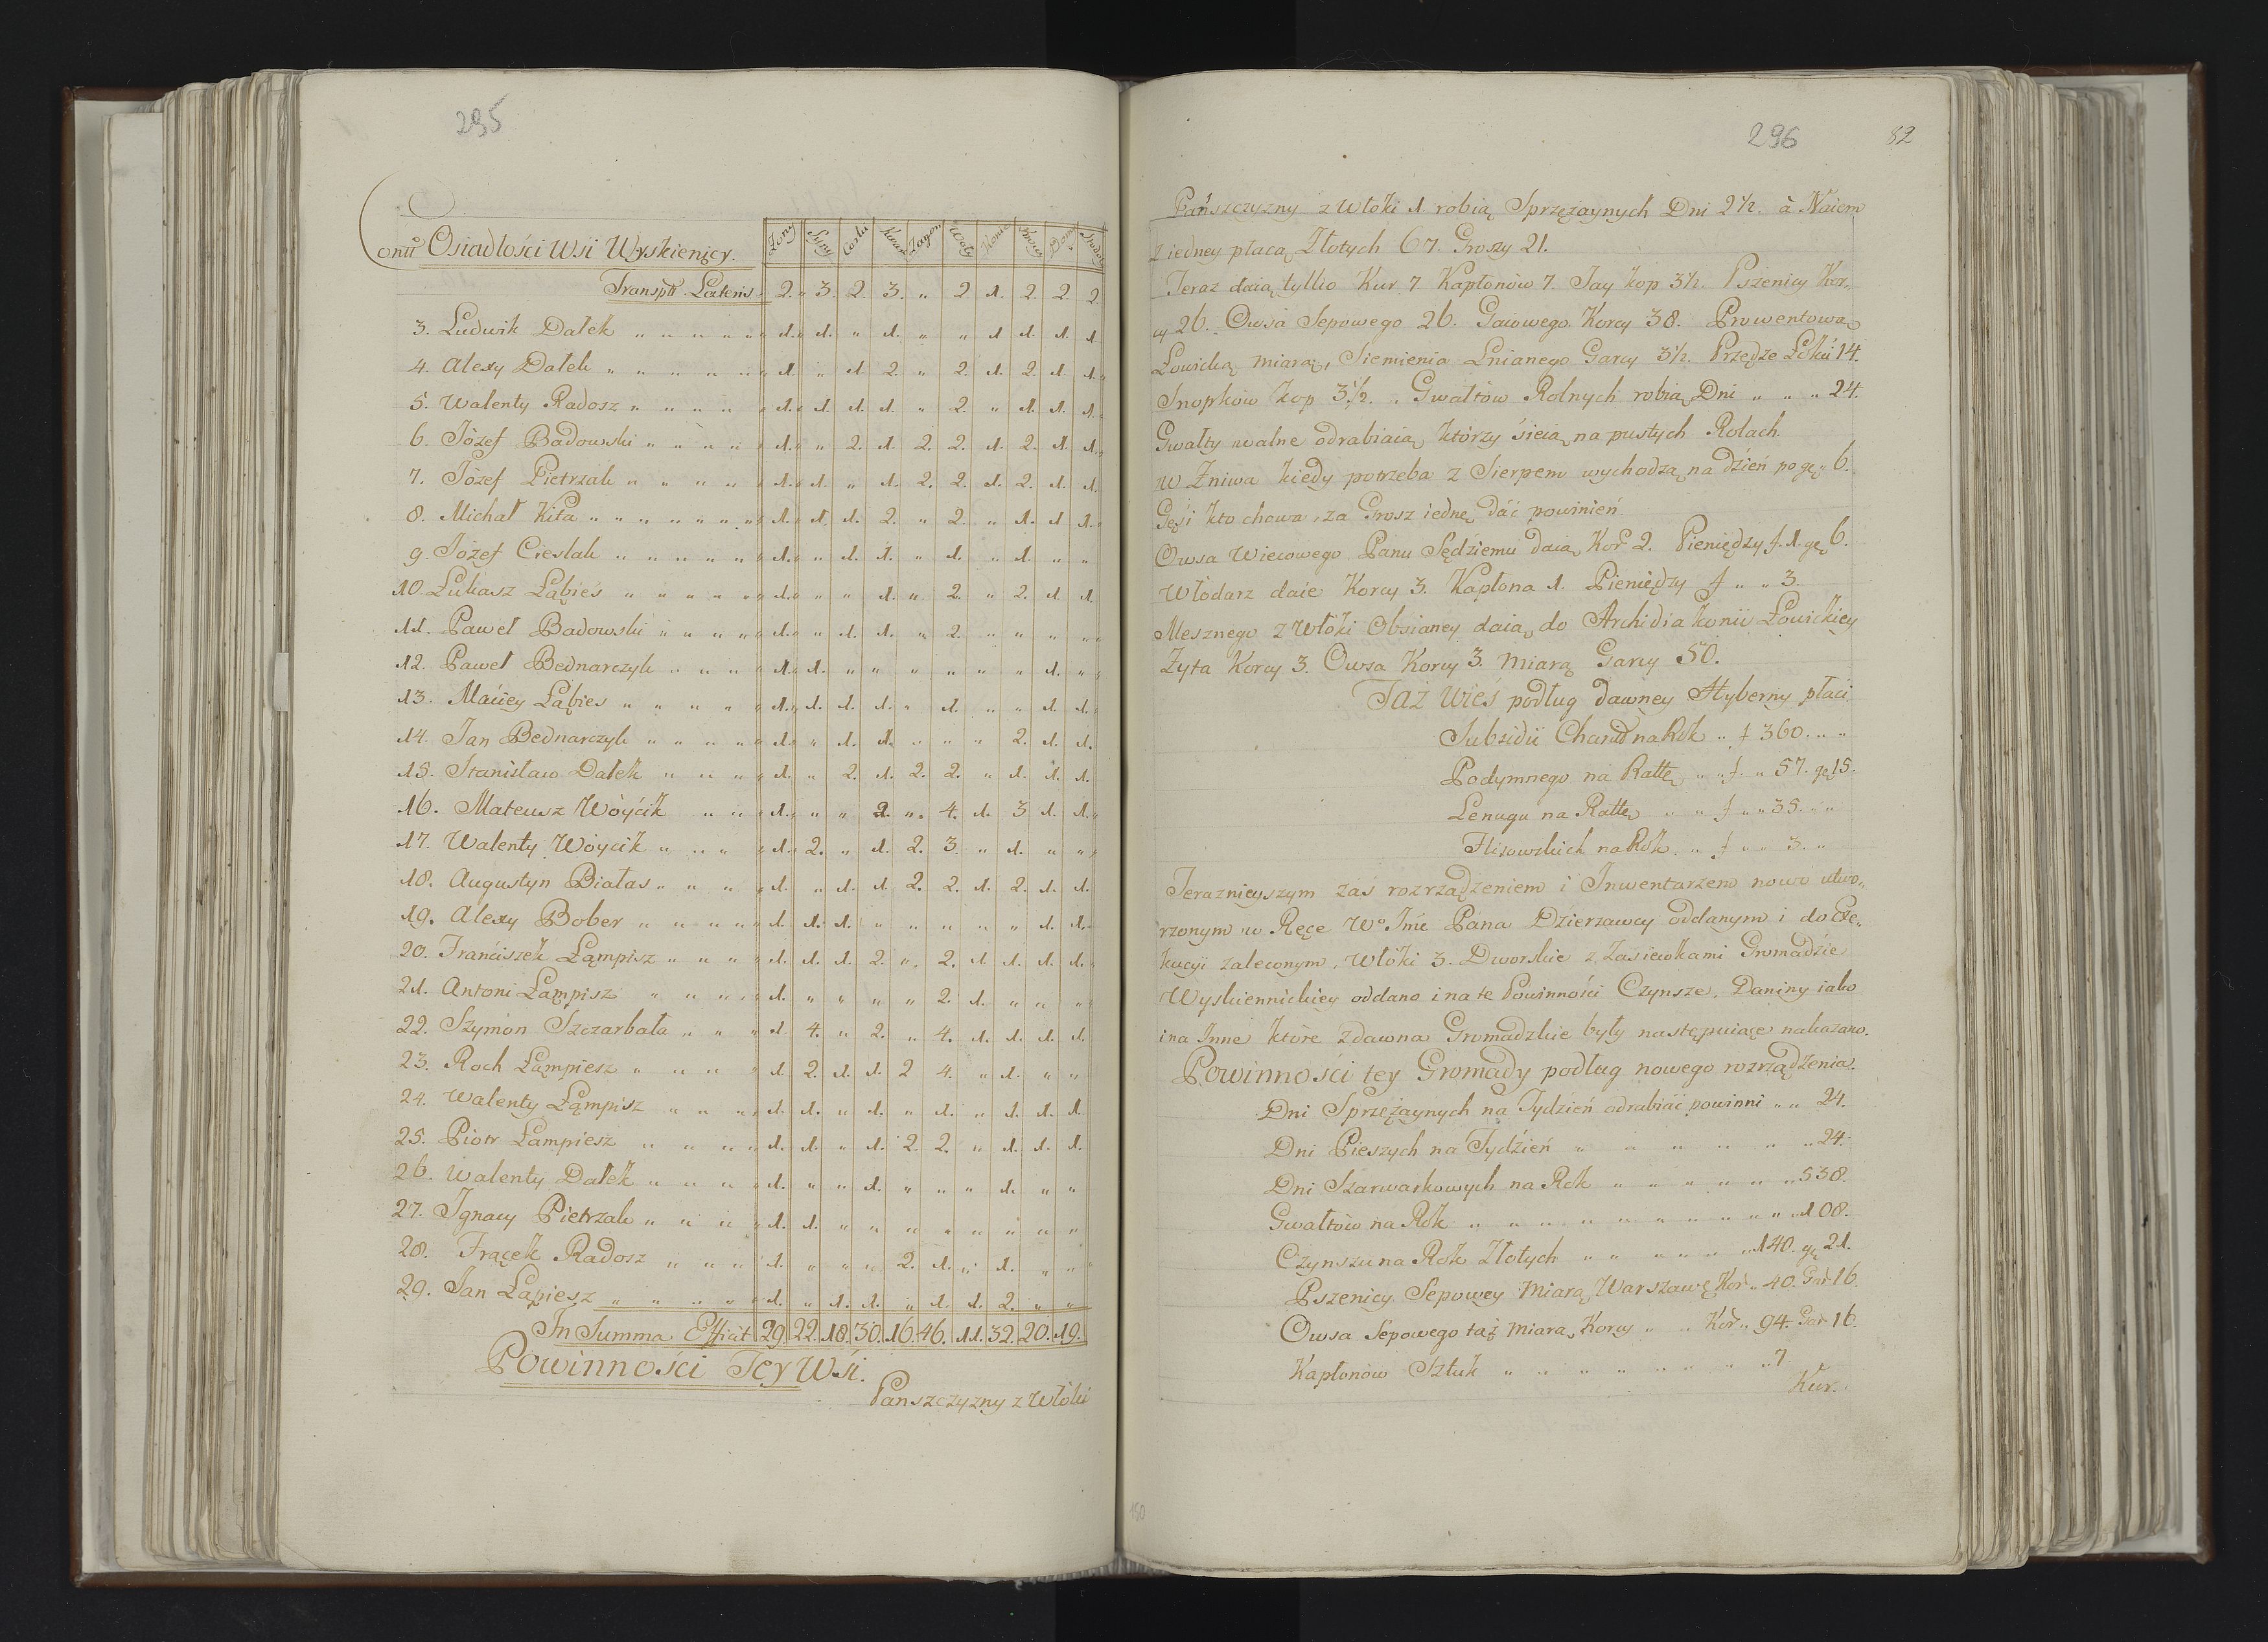 295
Contt Osiadłości Wsi Wyskienicy. Żony Syny Corki Kwart Zagon Woły Konie Krowy Dom Stodoły
Transptt Lateris 2. „ 3. 2. 3. „ 2. 1. 2. 2. 2.
3. Ludwik Dałek „ „ „ „ „ 1. 1. „ 1. „ „ 1. 1. 1. 1.
4. Alexy Dałek „ „ „ „ „ 1. „ 1. 2. „ 2. 1. 2. 1. 1.
5. Walenty Radosz „ „ „ „ „ 1. 1. 1. 1. „ 2. „ 1. 1. 1.
6. Józef Badowski „ „ „ „ „ 1. „ 2. 1. 2. 2. 1. 2. 1. 1.
7. Józef Pietrzak „ „ „ „ „ 1. 1. „ 1. 2. 2. 1. 2. 1. 1.
8. Michał Kita „ „ „ „ „ „ 1. 1. 1. 2. „ 2. „ 1. 1. 1.
9. Józef Cieslak „ „ „ „ „ 1. „ 1. 1. „ 1. „ 1. „ „
10. Łukasz Łąbieś „ „ „ „ „ 1. „ „ 1. „ 2. „ 2. 1. 1.
11. Paweł Badowski „ „ „ „ „ 1. „ 1. 1. „ 2. „ „ „ „
12. Paweł Bednarczyk „ „ „ „ 1. 1. „ „ „ „ „ „ 1. „
13. Maciey Łąbies „ „ „ „ „ 1. 1. 1. 1. „ 1. „ „ 1. 1.
14. Jan Bednarczyk „ „ „ „ „ 1. „ 1. 1. „ „ „ 2. 1. 1.
15. Stanisław Dałek „ „ „ „ 1. „ 2. 1. 2. 2. „ 1. 1. 1.
16. Mateusz Wóycik „ „ „ 1. „ „ 2. „ 4. 1. 3 1. 1.
17. Walenty Wóycik „ „ „ „ 1. 2. „ 1. 2. 3. „ 1. „ „
18. Augustyn Białas „ „ „ „ 1. „ 1. 1. 2. 2. 1. 2. 1. 1.
19. Alexy Bober „ „ „ „ „ 1. 1. 1. „ „ „ „ „ 1. 1.
20. Franciszek Łąmpisz „ „ „ „ 1. 1. 1. 2. „ 2. 1. 1. 1. 1.
21. Antoni Łąmpisz „ „ „ „ 1. „ „ „ „ 2. 1. „ „ „
22. Szymon Szczarbała „ „ „ „ 1. 4. „ 2. „ 4. 1. 1. 1. 1.
23. Roch Łąmpiesz „ „ „ „ „ 1. 2. 1. 1. 2 4. „ 1. „ „
24. Walenty Łąmpisz „ „ „ „ 1. 1. „ 1. „ 1. „ 1. 1. 1.
25. Piotr Łampiesz „ „ „ „ „ 1. 1. „ 1. 2. 2. „ 1. 1. 1.
26. Walenty Dałek „ „ „ „ „ 1. „ „ 1. „ „ „ 1. „ „
27. Jgnacy Pietrzak „ „ „ „ 1. 1. „ „ „ „ „ „ „ „
28. Frącek Radosz „ „ „ „ 1. „ „ „ 2. 1. „ 1. „ „
29. Jan Łąpiesz „ „ „ „ „ 1. „ 1. 1. „ 1. 1. 2. „ „
In Summa Efficit 29. 22. 18. 30. 16. 46. 11. 32. 20. 19.
Powinności Tey Wsi.
Panszczyzny z Włóki
296 82
Pańszczyzny z Włóki 1. robią Sprzężaynych Dni 2 1/2. à Naiem
z iedney płacą Złotych 67. Groszy 21.
Teraz daią tyllio Kur 7. Kapłonów 7. Jay kop 3 1/2. Pszenicy Kor„
cy 26. Owsa Sepowego 26. Gaiowego Korcy 38. Prowentową
Łowicką miarą, Siemienia Lnianego Garcy 3 1/2. Przędze Łokci 14.
Snopków kop 3 1/2. „ Gwałtów Rolnych robią Dni „ „ „ 24.
Gwałty walne odrabiaią którzy sieią na pustych Rolach.
w Żniwa kiedy potrzeba z Sierpem wychodzą na dzień po gę 6.
Gęsi kto chowa, za Grosz iednę dać powinień
Owsa Wiecowego Panu Sędziemu daią Kor 2. Pieniędzy f. 1. gę 6.
Włodarz daie Korcy 3. Kapłona 1. Pieniędzy f „ „ 3.
Mesznego z Włóki Obsianey daią do Archidiakonii Łowickiey
Żyta Korcy 3. Owsa Korcy 3. miarą Garcy 50.
Taż Wieś podług dawney Hyberny płaci
Subsidii Charid na Rok „ f 360. „ „
Podymnego na Rattę „ „ f. „ 57. gę 15.
Lenugu na Rattę „ „ f „ „ 35. „ „
Flisowskich na Rok „ f „ „ 3. „
Teraznieyszym zaś rozrządzeniem i Inwentarzem nowo utwo„
rzonym w Ręce Wo Jmć Pana Dzierzawcy oddanym i do Exe„
kucyi zaleconym, Włóki 3. Dworskie z Zasiewkami Gromadzie
Wyskiennickiey oddano i na te Powinności Czynsze, Daniny iako
i na Inne które zdawna Gromadzkie były następuiące nakazano.
Powinności tey Gromady podług nowego rozrządzenia.
Dni Sprzężaynych na Tydzień odrabiać powinni „ „ 24.
Dni Pieszych na Tydzień „ „ „ „ „ „ 24.
Dni Szarwarkowych na Rok „ „ „ „ „ „ 538.
Gwałtów na Rok „ „ „ „ „ „ „ „ „ „ 108.
Czynszu na Rok Złotych „ „ „ „ „ 140. gę 21.
Pszenicy Sepowey Miarą Warszawę Kor. 40. Gar. 16.
Owsa Sepowego taż Miarą Korcy „ „ Kor. 94. Gar 16.
Kapłonów Sztuk „ „ „ „ „ „ „ „ 7
Kur.
150